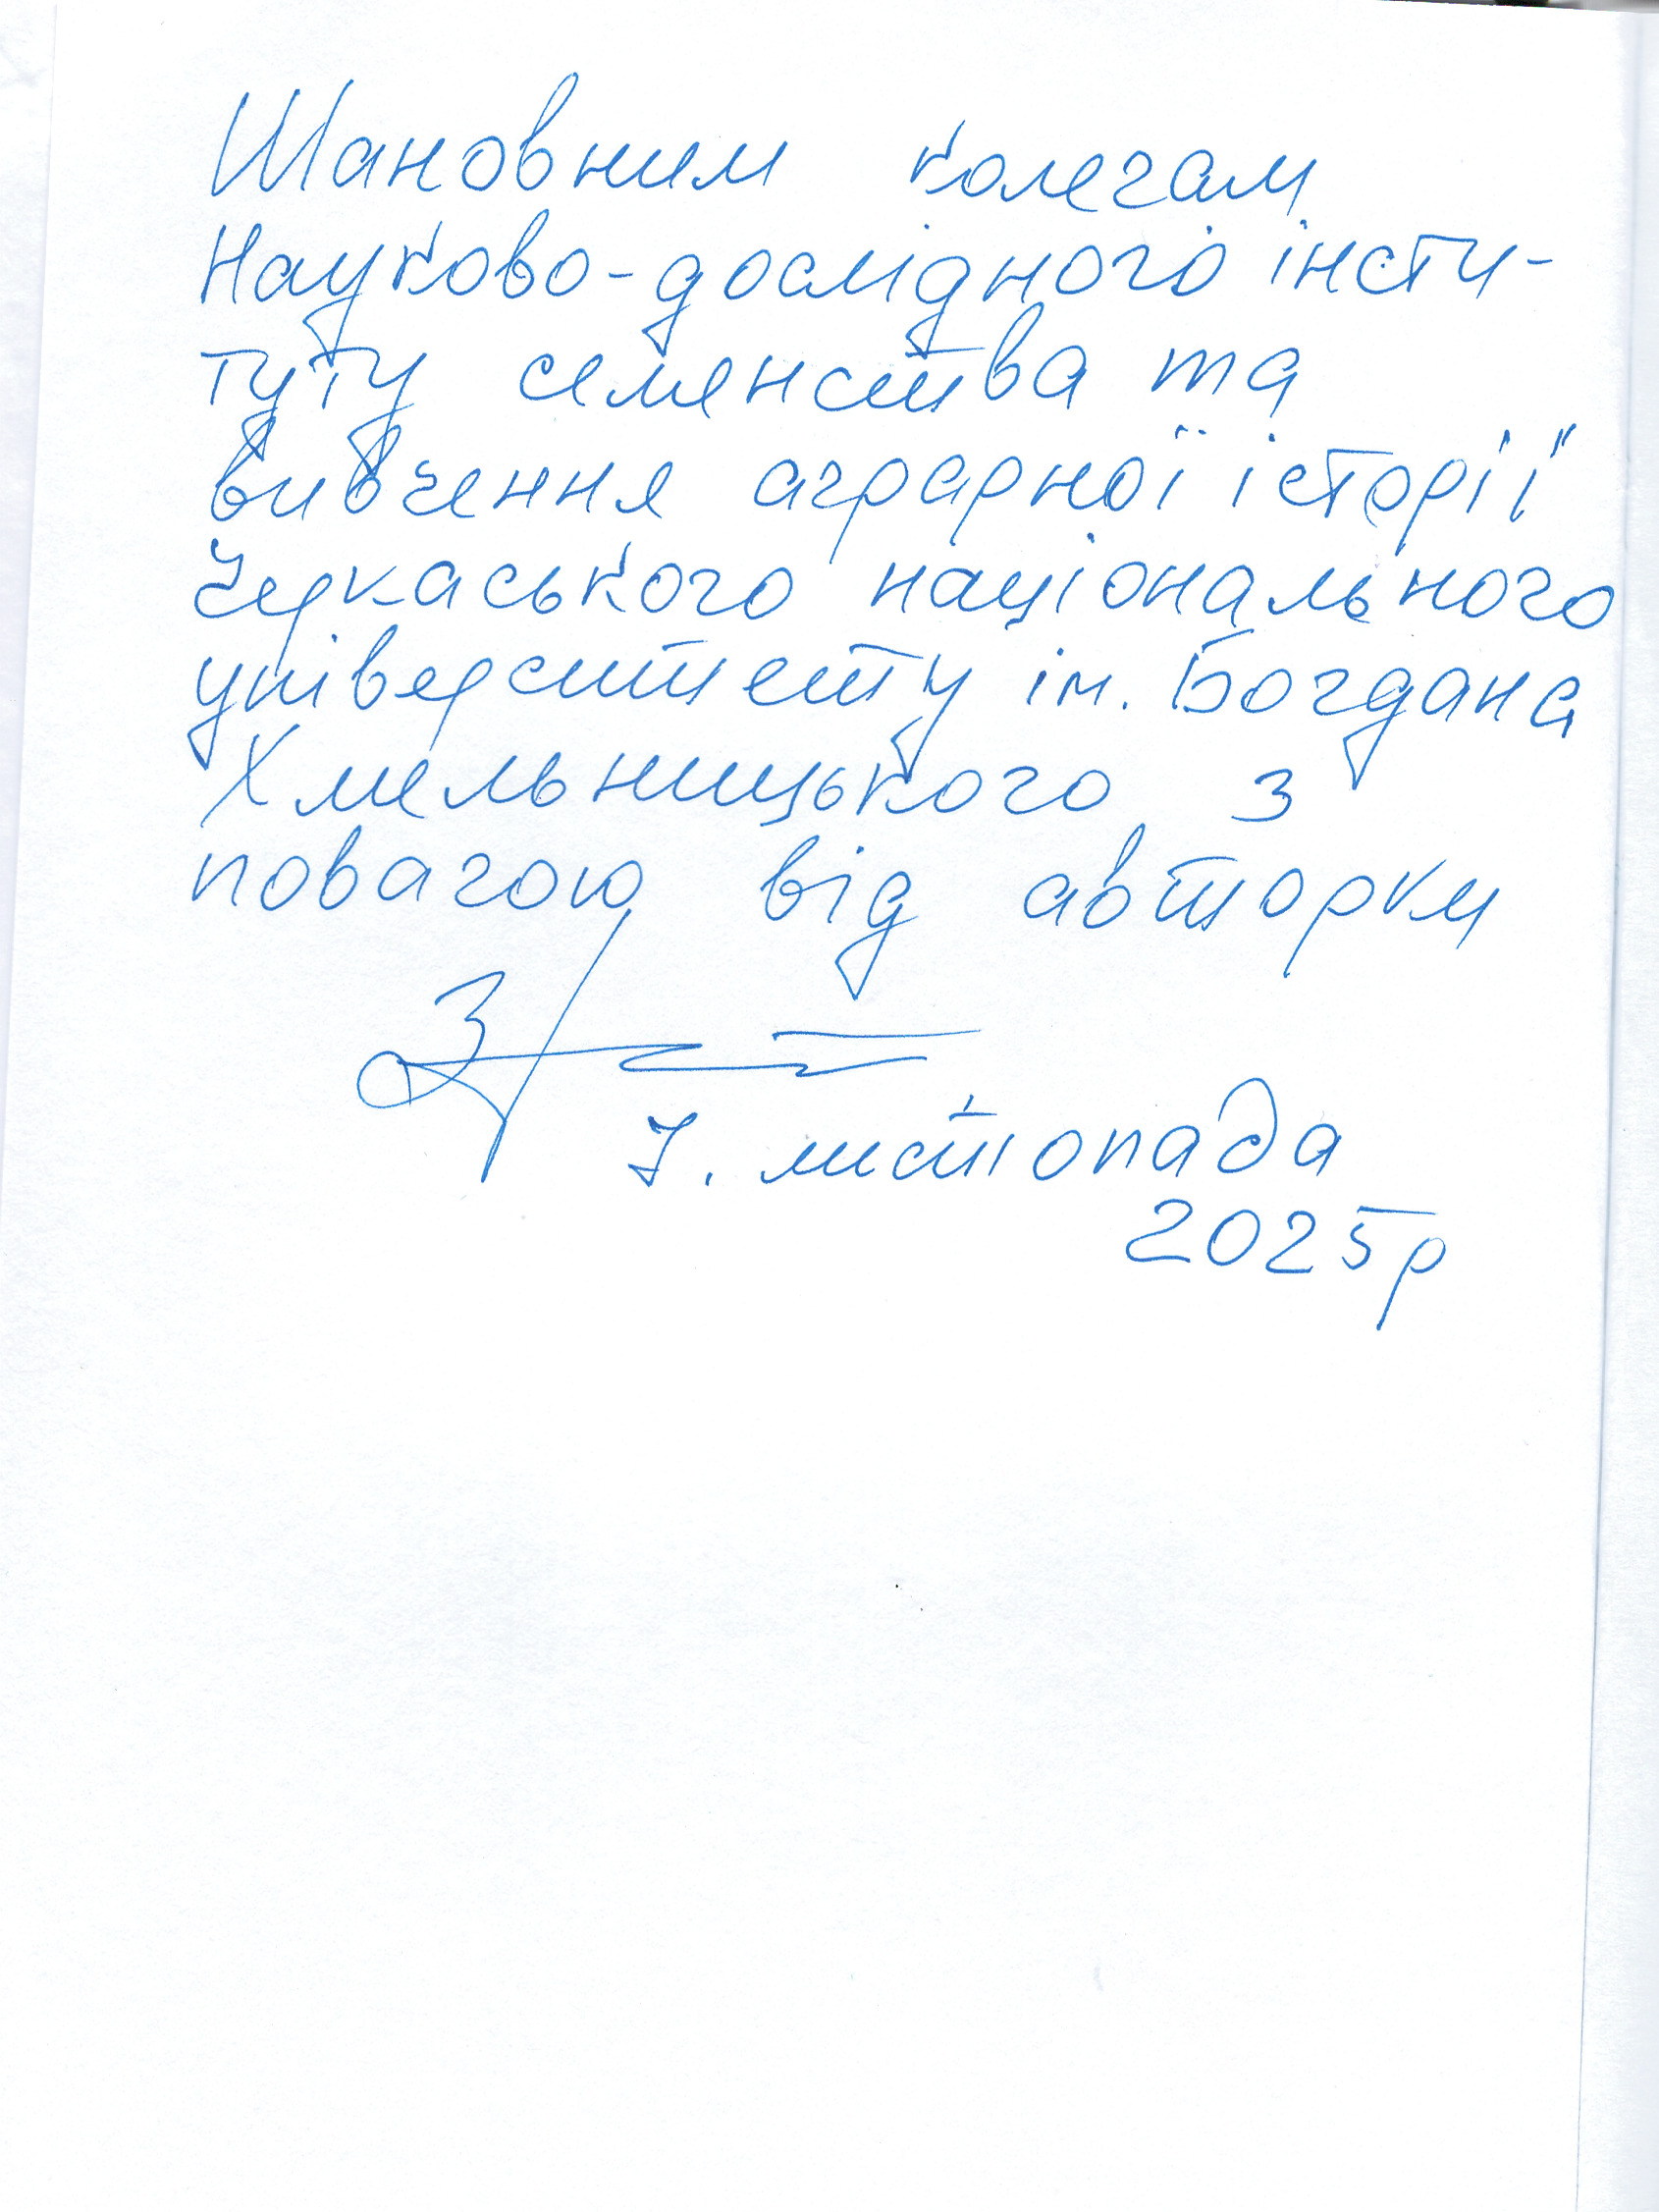 Шановним колегам
Науково-дослідного інсти-
туту селенства та
вивчення аграрної історії
Черкаського національного
університету ім. Богдана
Хмельницького з
повагою від авторки
7. листопада
2025р